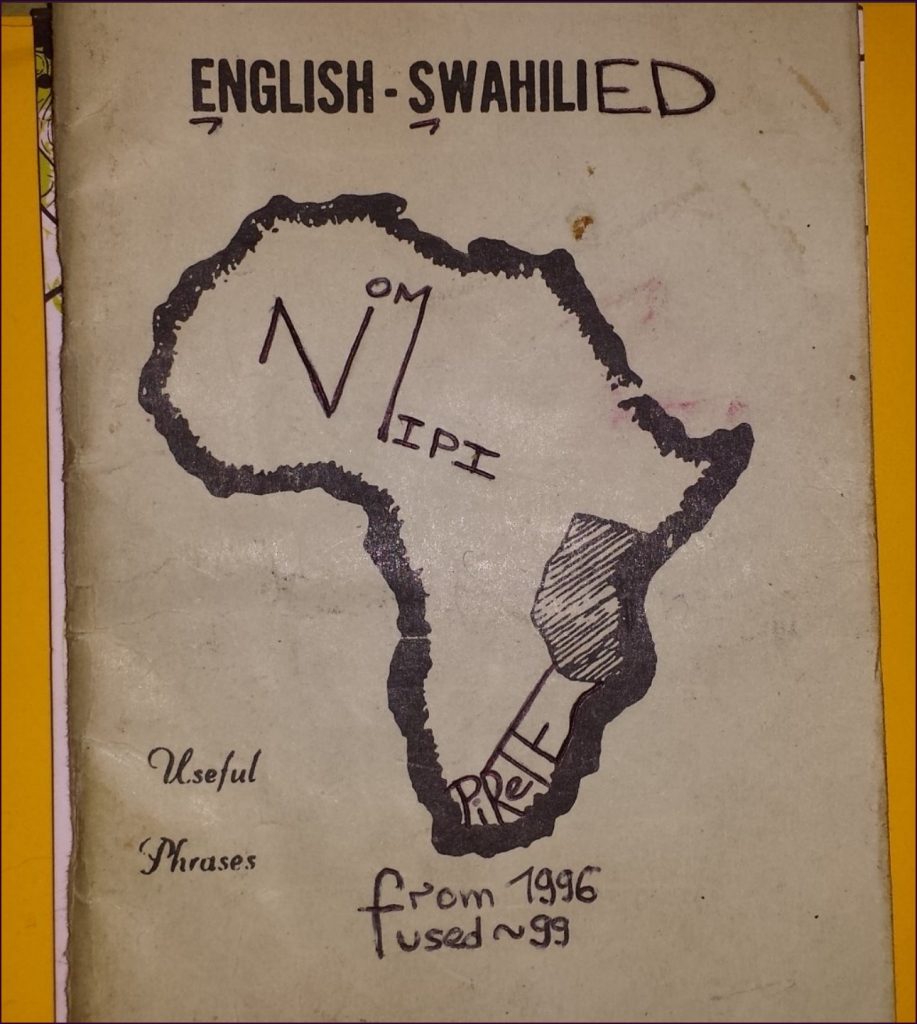 ENGLISH - SWAHILIED
NiOM
IPI
PiReTE
Useful
Phrases
from 1996
fused ~99